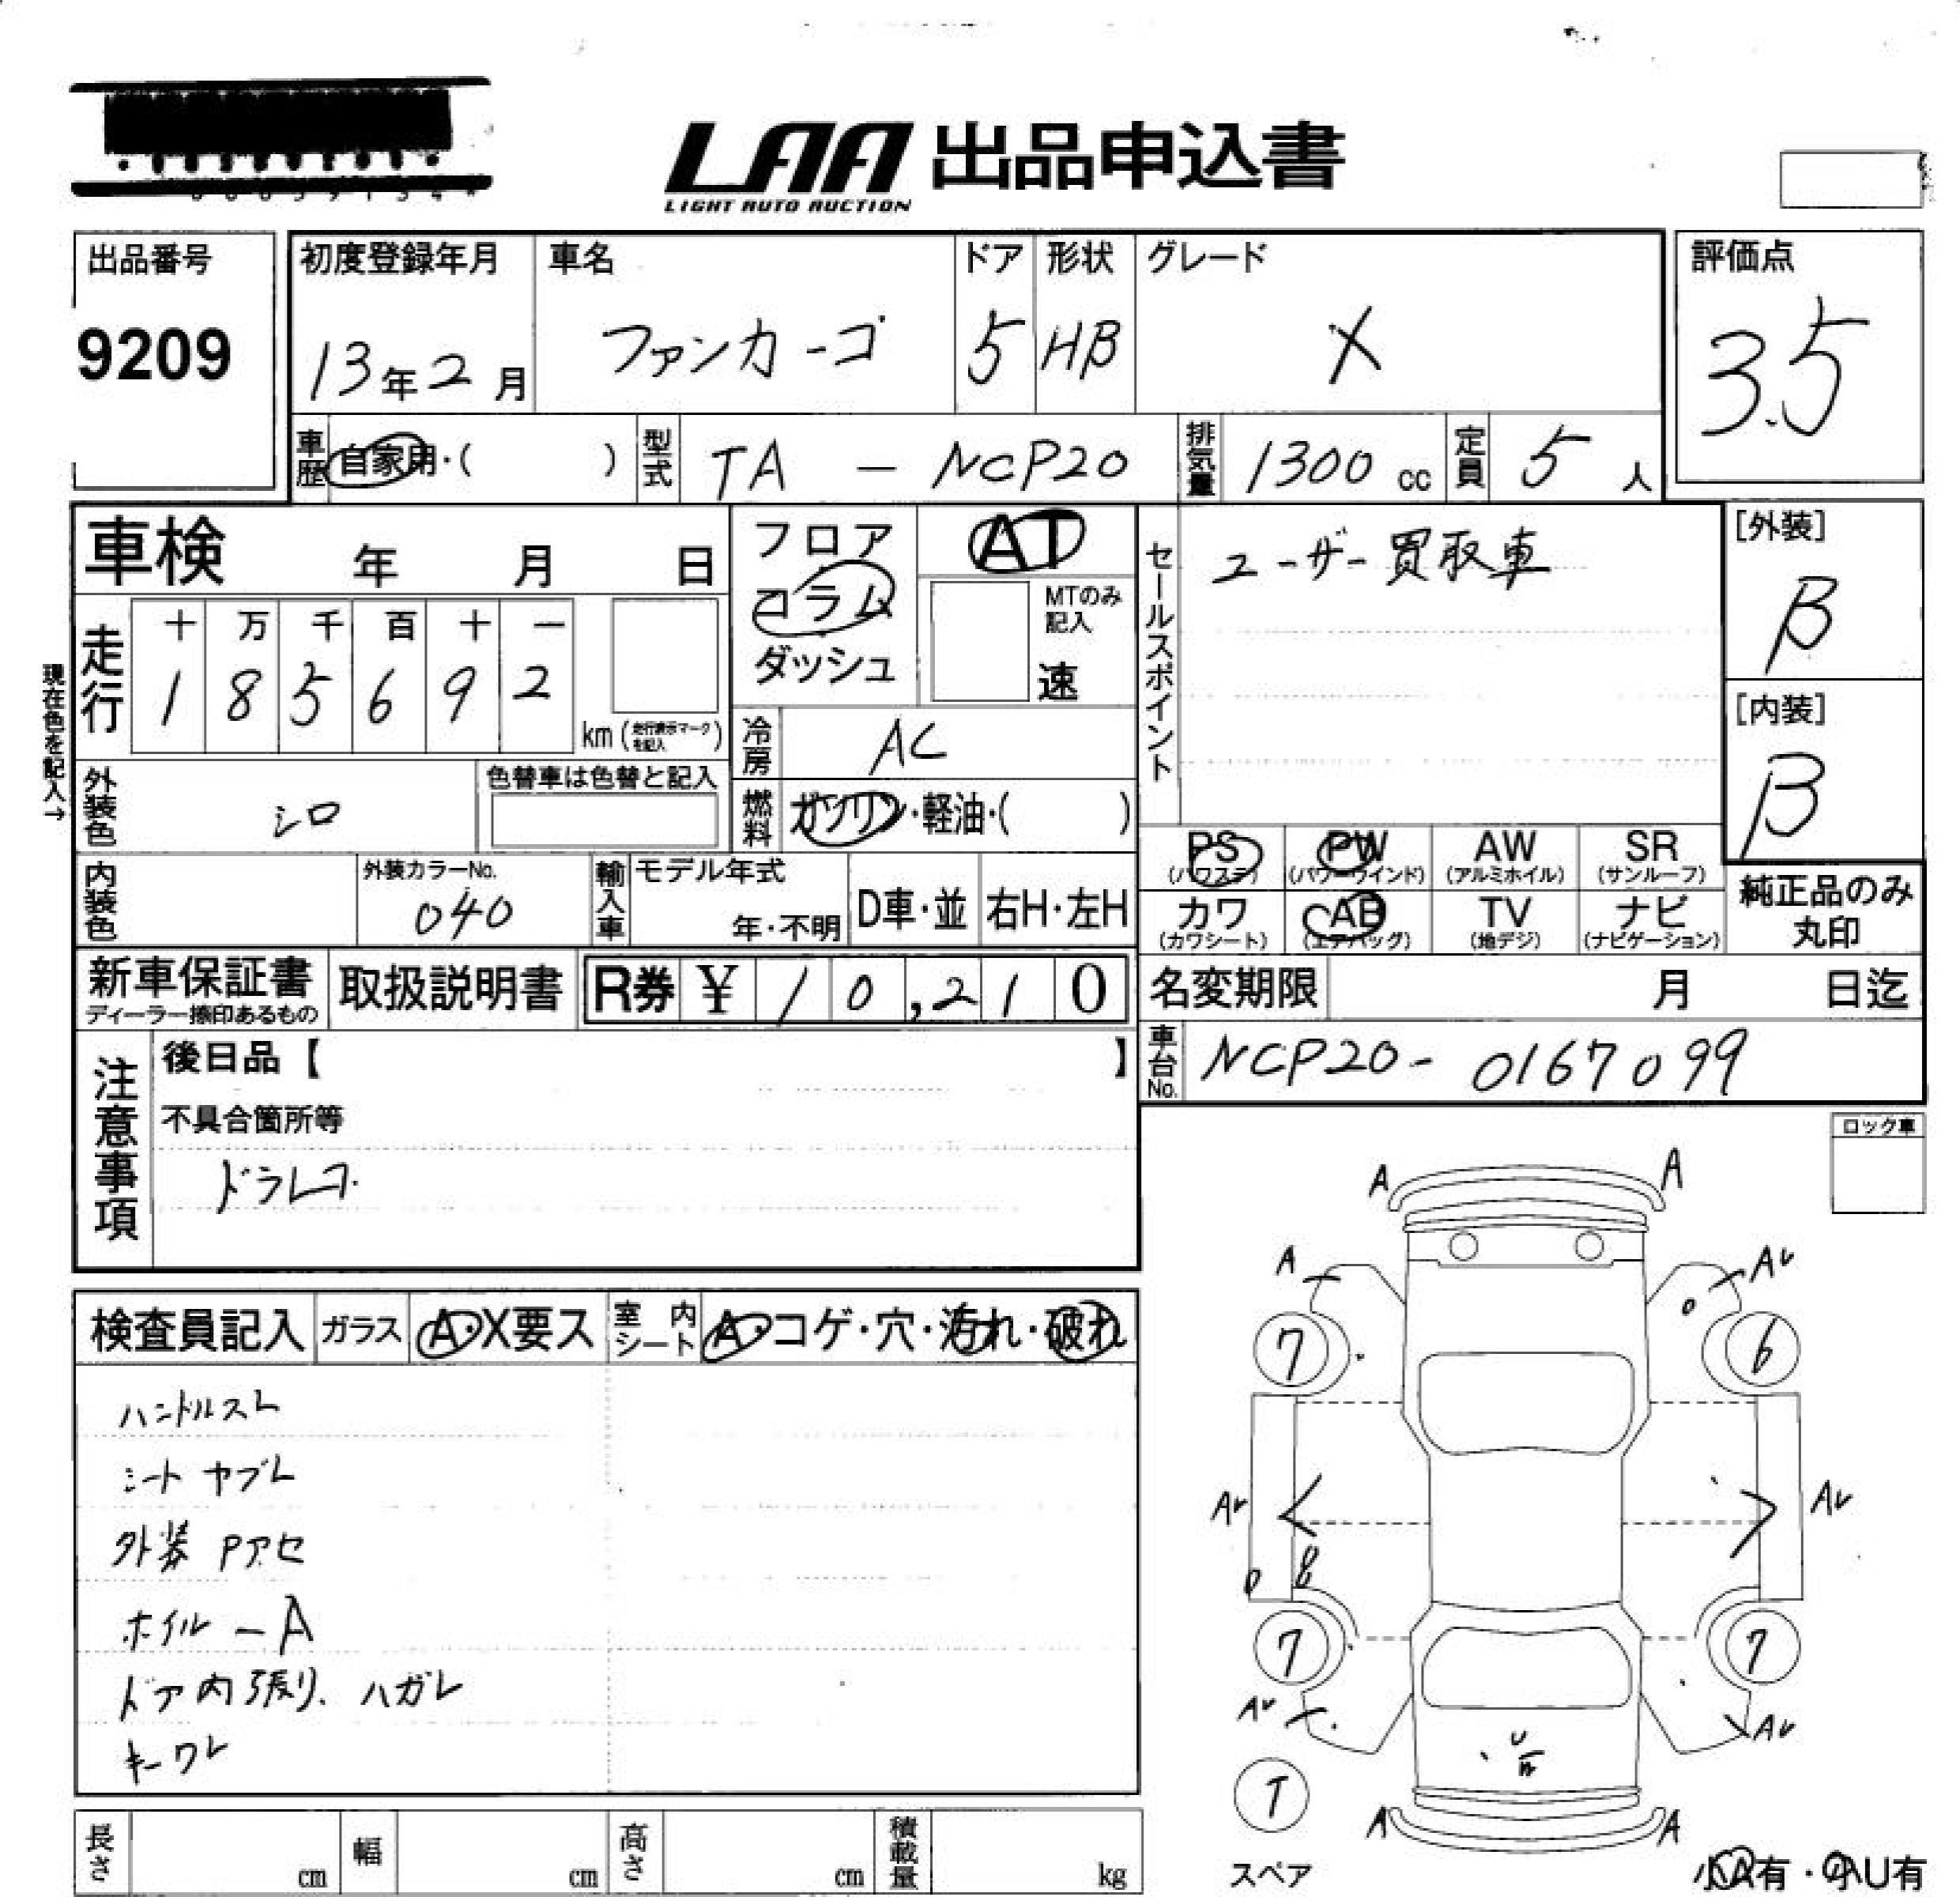 LAA 出品申込書
LIGHT AUTO AUCTION
出品番号
9209
初度登録年月
13年2月
車名
ファンカーゴ
ドア
5
形状
HB
グレード
X
評価点
3.5
車歴 自家用・( )
型式 TA - NCP20
排気量 1300 cc
定員 5 人
車検 年 月 日
フロア
コラム
ダッシュ
AT
MTのみ記入
速
セールスポイント
ユーザー買取車
[外装]
B
[内装]
B
現在色を記入→
走行
十 万 千 百 十 一
1 8 5 6 9 2
km (走行表示マークを記入)
冷房 AC
外装色 シロ
色替車は色替と記入
燃料 ガソリン・軽油・( )
PS (パワステ)
PW (パワーウインド)
AW (アルミホイル)
SR (サンルーフ)
カワ (カワシート)
AB (エアバッグ)
TV (地デジ)
ナビ (ナビゲーション)
純正品のみ
丸印
内装色
外装カラーNo.
040
輸入車
モデル年式
年・不明
D車・並
右H・左H
新車保証書
ディーラー捺印あるもの
取扱説明書
R券 ¥ 10,210
名変期限 月 日迄
車台No. NCP20- 0167099
注意事項
後日品【 】
不具合箇所等
ドラレコ
ロック車
検査員記入
ガラス A・X要ス
室内シート A・コゲ・穴・汚れ・破れ
ハンドルスレ
シート ヤブレ
外装 Pアセ
ホイル - A
ドア内張り、ハガレ
キーワレ
A A
A AU
7 6
AU AU
7 7
AU AU
U
T
A A
スペア
小A有・小U有
長さ cm
幅 cm
高さ cm
積載量 kg